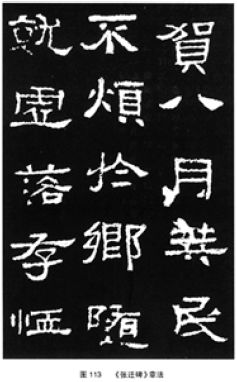 賀八月筭民
不煩於鄉隨
就虛落存恤
图 113 《张迁碑》章法